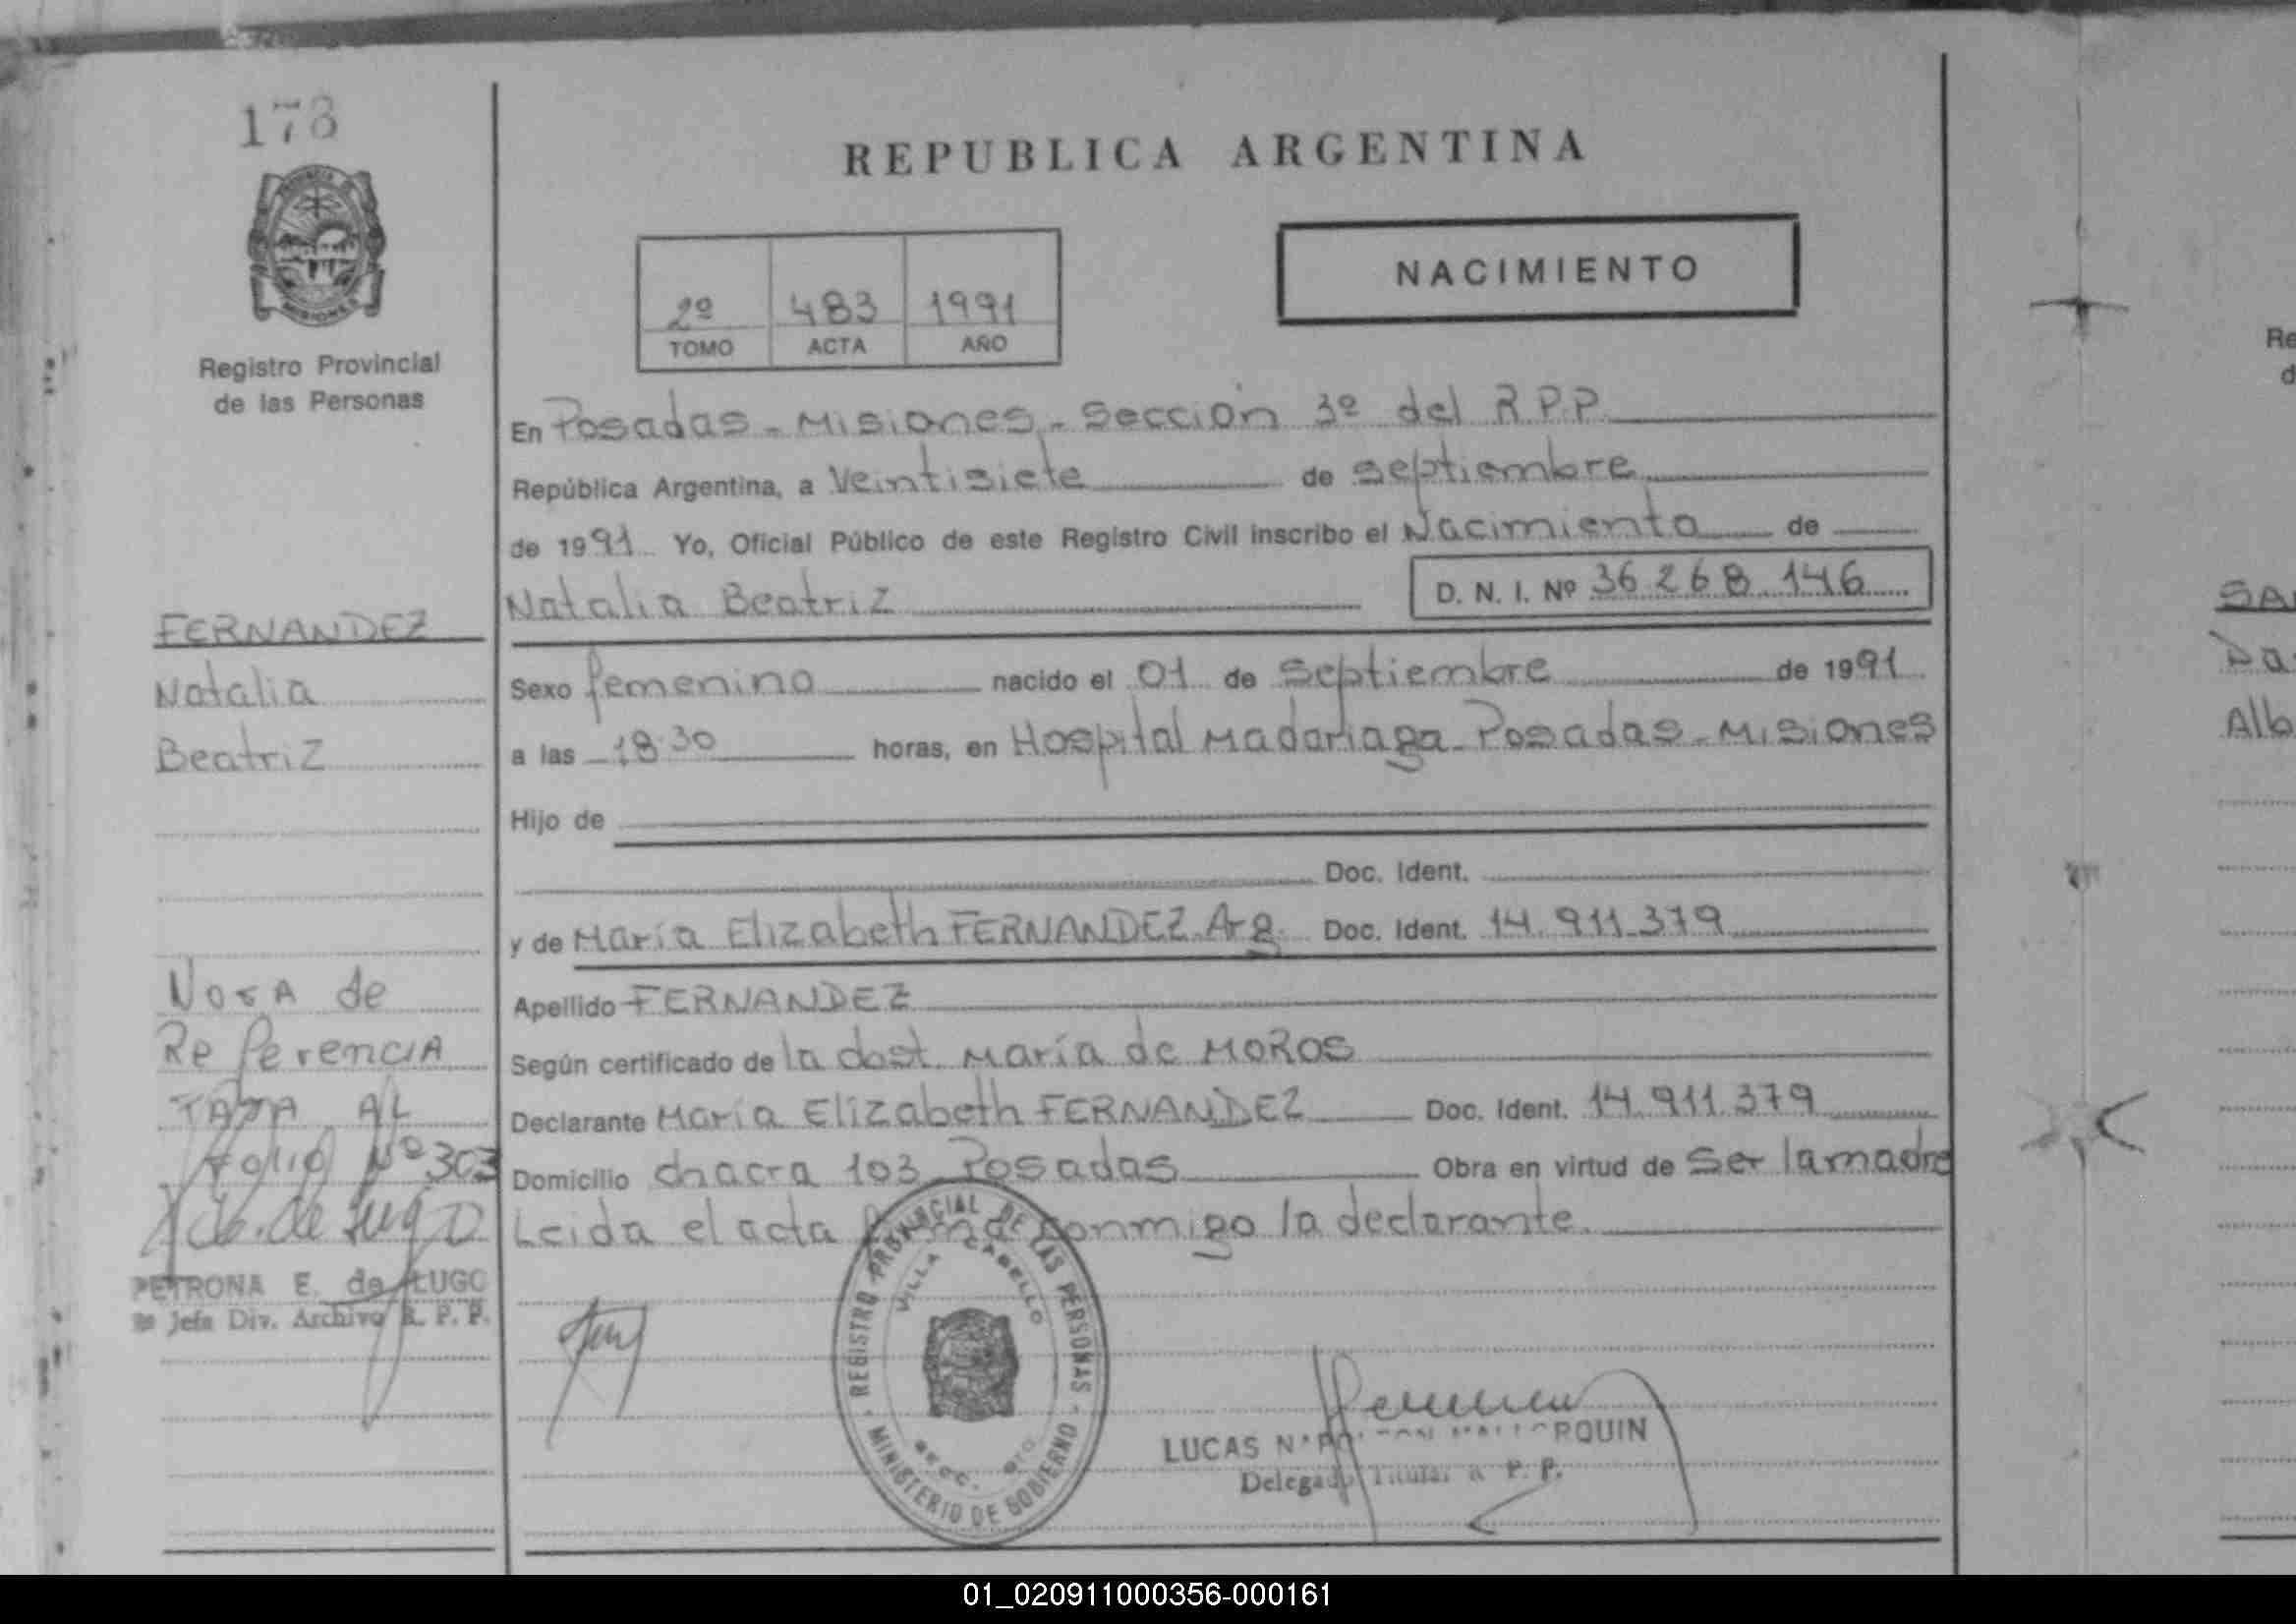 178
REPUBLICA ARGENTINA
PROVINCIA DE
MISIONES
Registro Provincial
de las Personas
2º 483 1991
TOMO ACTA AÑO
NACIMIENTO
En Posadas - Misiones - Sección 3º del R.P.P.
República Argentina, a Veintisiete de septiembre
de 1991 Yo, Oficial Público de este Registro Civil inscribo el Nacimiento de
Natalia Beatriz D. N. I. Nº 36.268.146
FERNANDEZ
Natalia
Beatriz
Sexo femenino nacido el 01 de Septiembre de 1991
a las 18:30 horas, en Hospital Madariaga - Posadas - Misiones
Hijo de
Doc. Ident.
y de María Elizabeth FERNANDEZ Arg. Doc. Ident. 14.911.379
Apellido FERNANDEZ
Según certificado de la obst. María de MOROS
Declarante María Elizabeth FERNANDEZ Doc. Ident. 14.911.379
Domicilio chacra 103 Posadas Obra en virtud de Ser la madre
Leida el acta firma conmigo la declarante.
Nota de
Referencia
AL
Folio Nº 303
PETRONA E. de LUGO
Jefa Div. Archivo R. P. P.
REGISTRO PROVINCIAL DE LAS PERSONAS
VILLA CABELLO
MINISTERIO DE GOBIERNO
LUCAS
Delegado Titular R. P. P.
Re
d
SA
Da
Alb
01_020911000356-000161